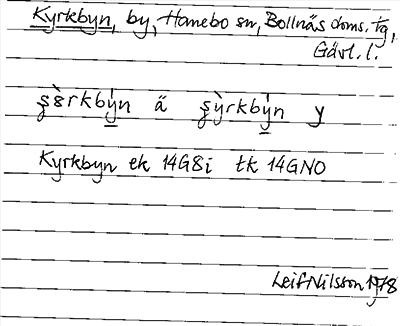 Kyrkbyn, by, Hanebo sn, Bollnäs doms. tg,
Gävl. l.
ä y
Kyrkbyn ek 14G8i tk 14GNO
Leif Nilsson 1978